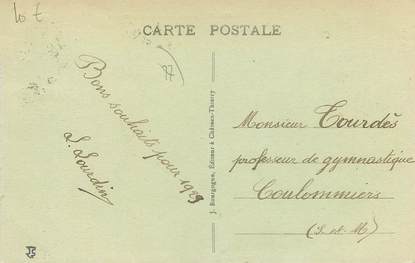 10 €
CARTE POSTALE
Bons souhaits pour 1929
L. Lourdin
J. Bourgogne, Éditeur à Château-Thierry
Monsieur Tourdès
professeur de gymnastique
Coulommiers
(S. et M.)